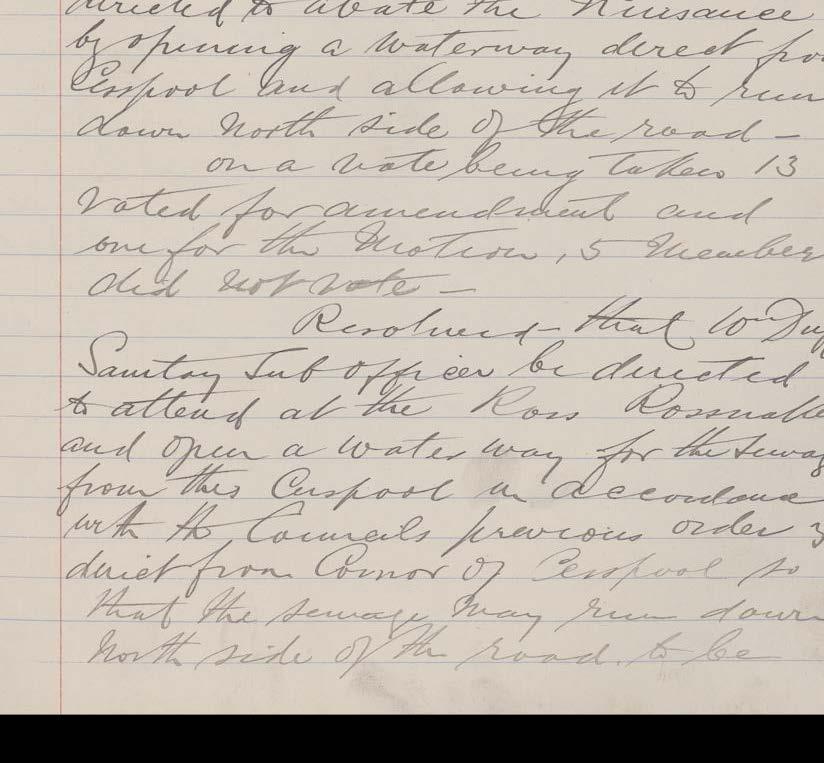 directed to abate the Nuisance
by opening a waterway direct from
Cesspool and allowing it to run
down North side of the road —
on a vote being taken 13
voted for amendment and
one for the Motion, 5 Member
did not vote —
Resolved – that Wm
Sanitay Sub officer be directed
to attend at the Ross
and open a water way for the sewag
from this Cesspool in accordance
with the Councils previous order
direct from Cornor of Cesspool so
that the sewage may run down
North side of the road. to be